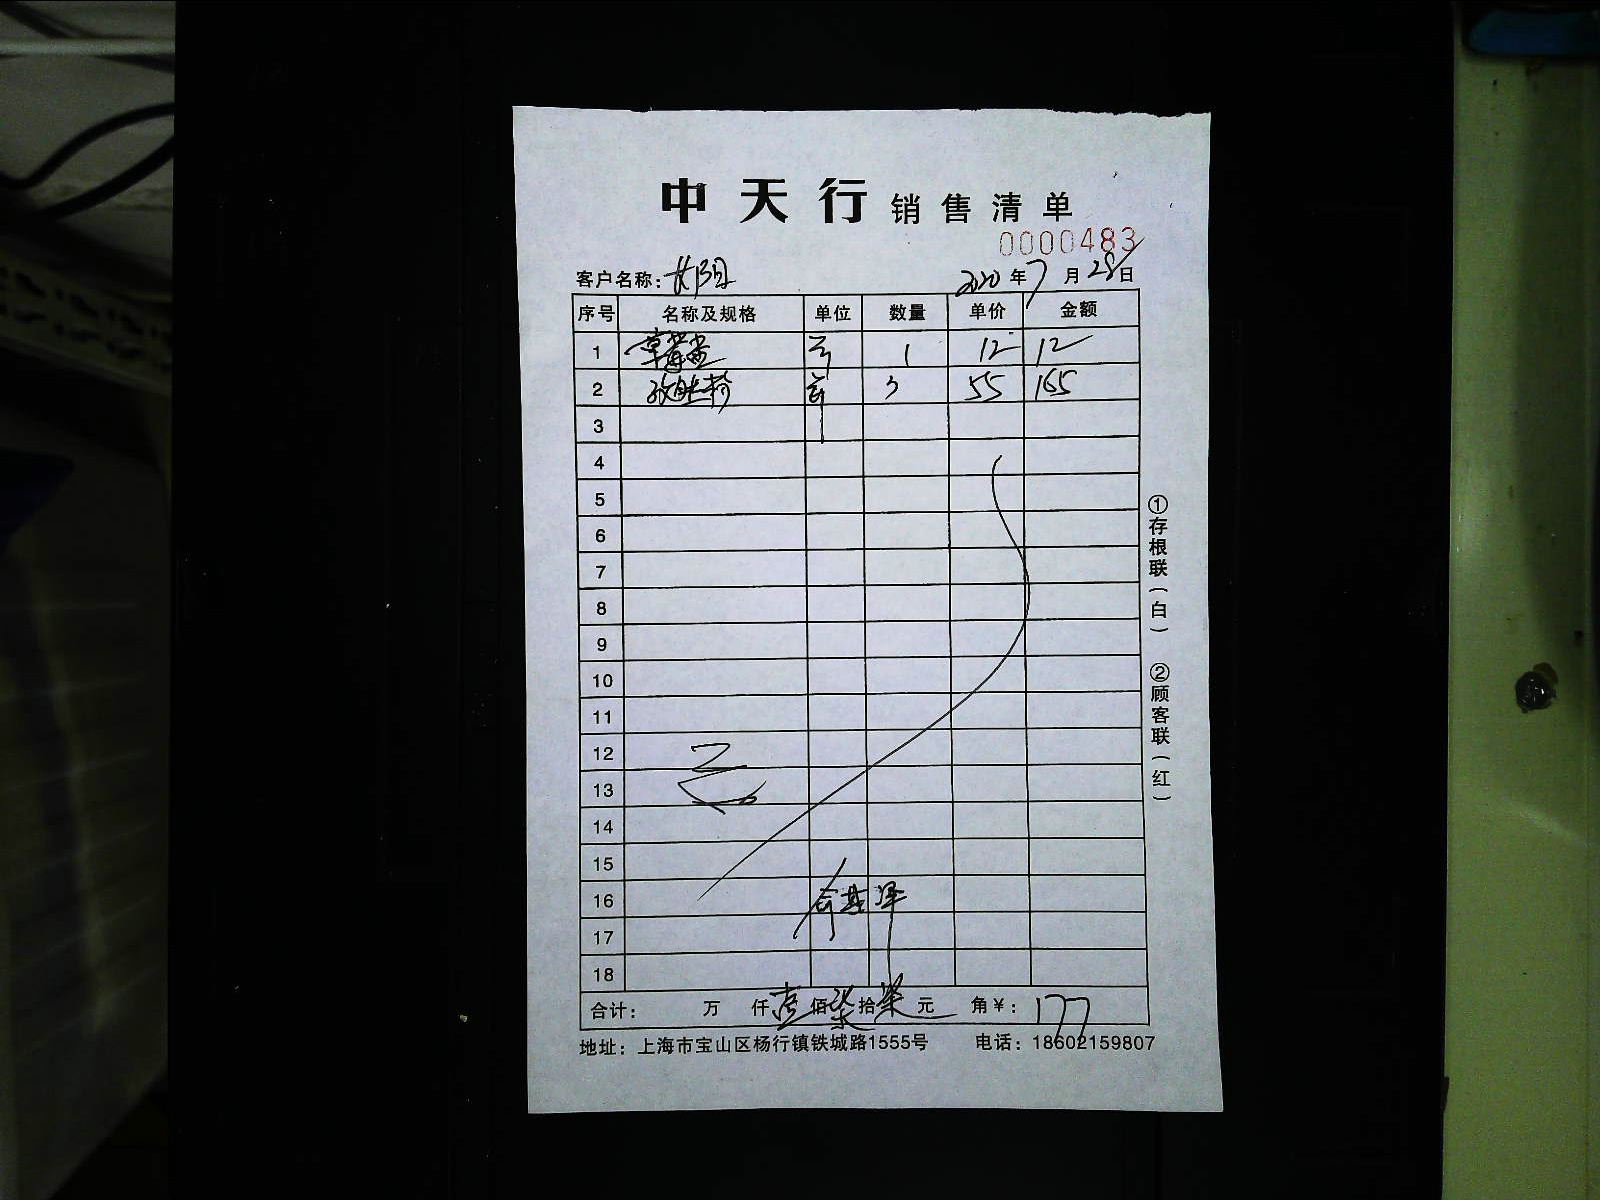 中天行 销售清单
0000483
客户名称： 2020 年 7 月 28 日
序号 名称及规格 单位 数量 单价 金额
1 草莓 1 12 12
2 3 55 165
3
4
5
6
7
8
9
10
11
12
13
14
15
16
17
18
合计： 万 仟 壹 佰 柒 拾 柒 元 角 ￥： 177
地址：上海市宝山区杨行镇铁城路1555号 电话：18602159807
①存根联（白） ②顾客联（红）